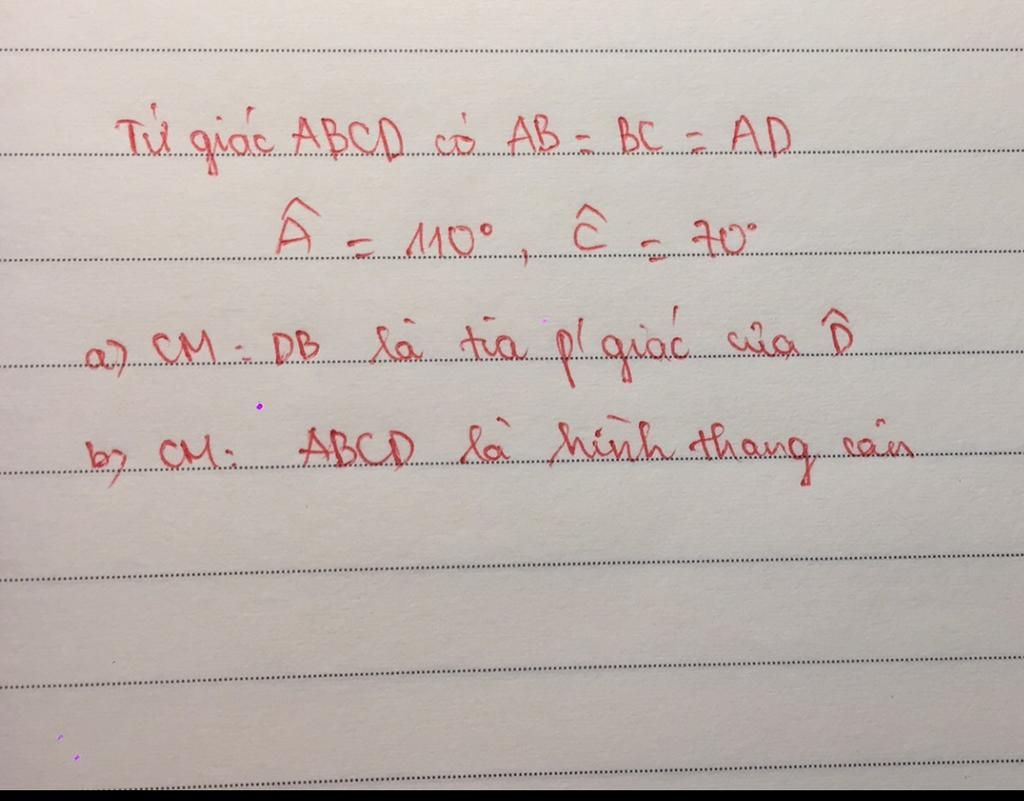 Tứ giác ABCD có AB = BC = AD
Â = 110°, Ĉ = 70°
a) CM: DB là tia p/ giác của D̂
b) CM: ABCD là hình thang cân